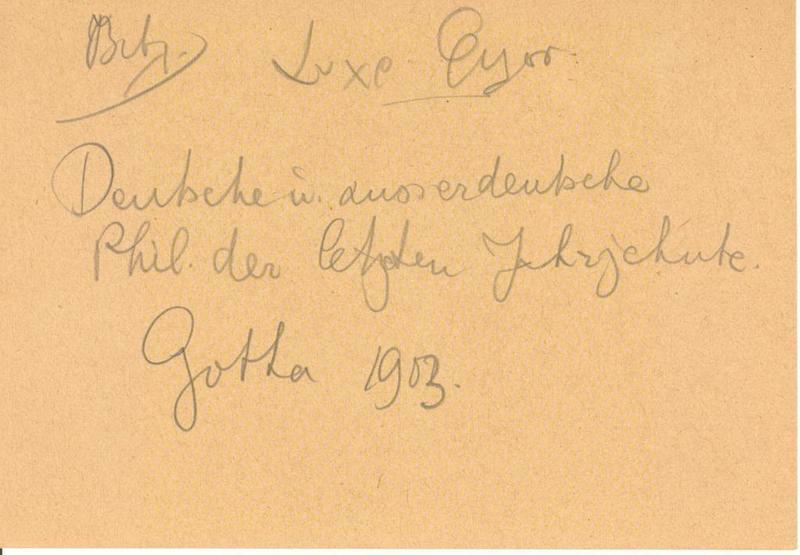 Luxe
Deutsche u. ausserdeutsche
Phil. der letzten Jahrzehnte.
Gotha 1903.